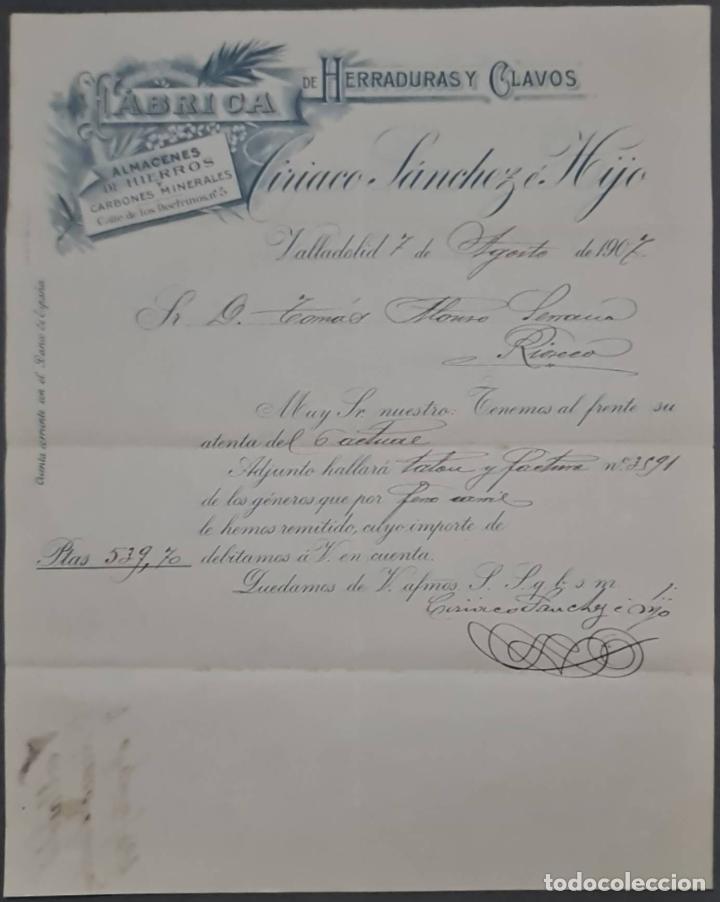 FÁBRICA
DE HERRADURAS Y CLAVOS
ALMACENES
DE HIERROS
Y
CARBONES MINERALES
Calle de los Doctrinos, nº 5
Ciriaco Sánchez é Hijo
Valladolid 7 de Agosto de 1907
Sr. D. Tomás Alonso
Rioseco
Cuenta corriente con el Banco de España
Muy Sr. nuestro: Tenemos al frente su
atenta del 6 actual
Adjunto hallará talon y factura nº 3591
de los géneros que por ferro carril
le hemos remitido, cuyo importe de
Ptas 539,70 debitamos á V. en cuenta.
Quedamos de V. afmos. S. S. q. b. s. m.
Ciriaco Sanchez é Hijo
todocoleccion.net